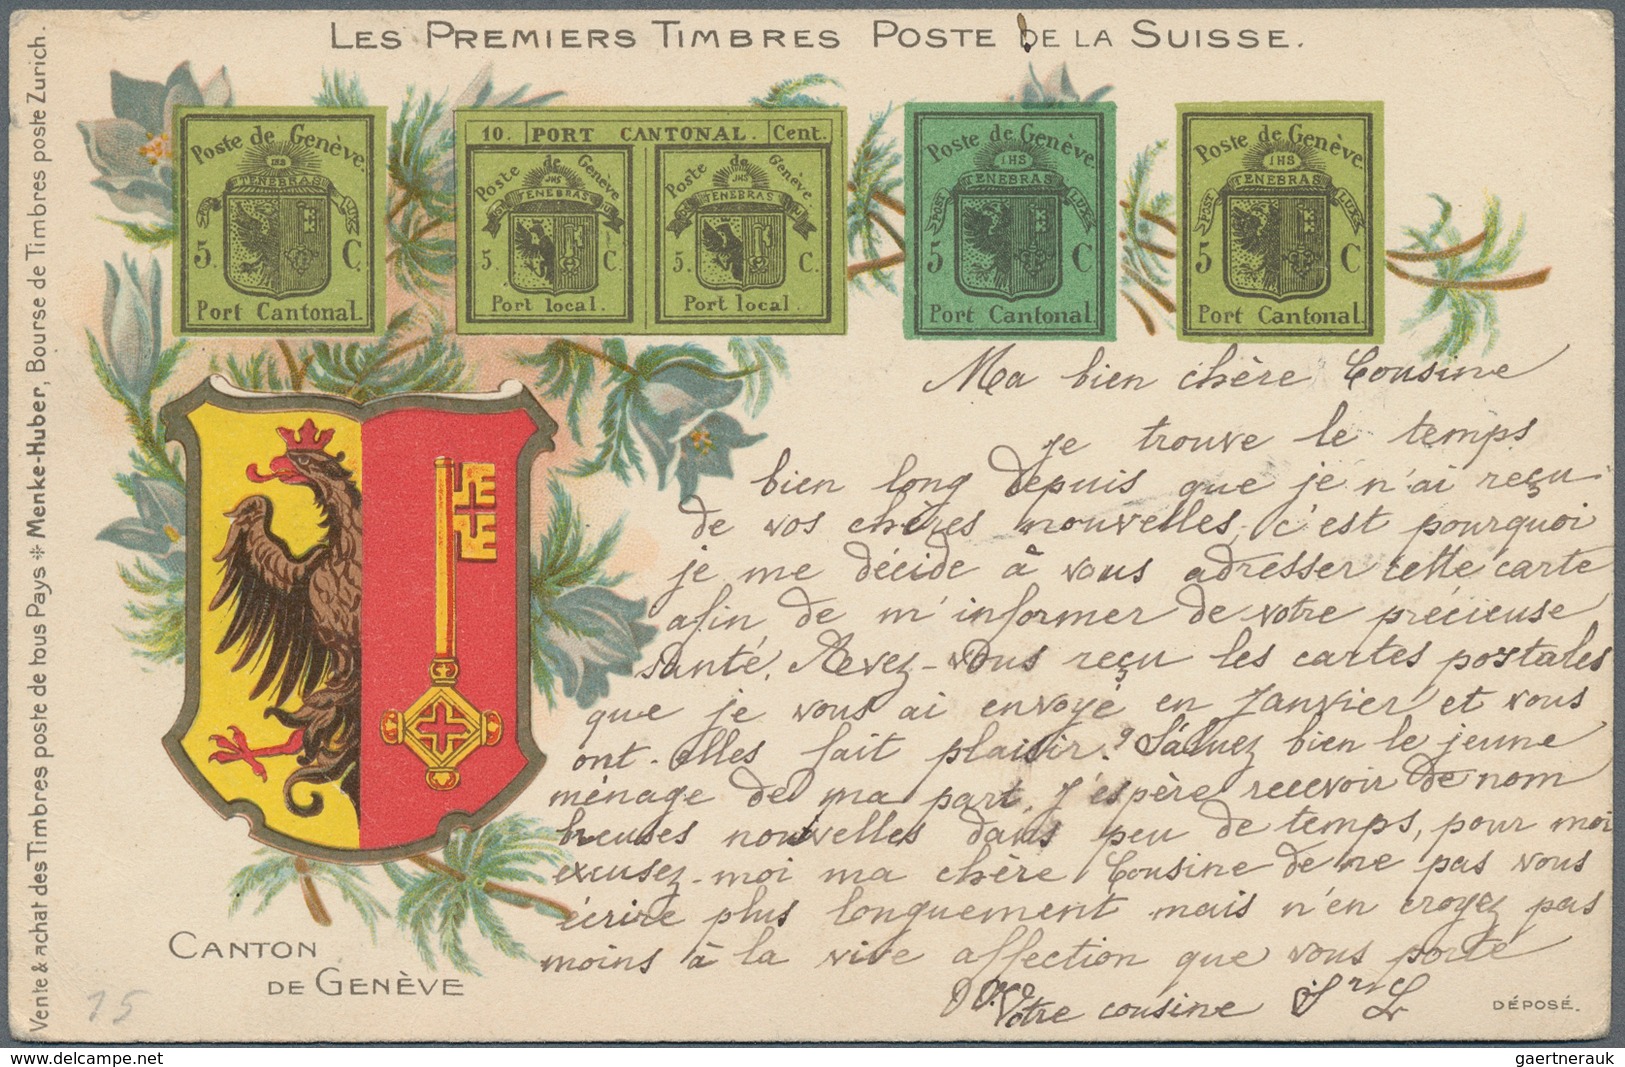 LES PREMIERS TIMBRES POSTE DE LA SUISSE.
Vente & achat des Timbres poste de tous Pays ✻ Menke-Huber, Bourse de Timbres poste Zurich.
Poste de Genève.
IHS
TENEBRAS
LUX
5 C.
Port Cantonal.
10. PORT CANTONAL. Cent.
Poste de Genève
JHS
TENEBRAS
5. C.
Port local.
Poste de Genève
JHS
TENEBRAS
5. C.
Port local.
Poste de Genève.
IHS
TENEBRAS
POST LUX
5 C
Port Cantonal.
Poste de Genève.
IHS
TENEBRAS
POST LUX
5 C
Port Cantonal.
Ma bien chère Cousine
je trouve le temps
bien long depuis que je n'ai reçu
de vos chères nouvelles, c'est pourquoi
je me décide à vous adresser cette carte
afin de m'informer de votre précieuse
santé. Avez-vous reçu les cartes postales
que je vous ai envoyé en Janvier et vous
ont-elles fait plaisir? Saluez bien le jeune
ménage de ma part, J'espère recevoir de nom
breuses nouvelles dans peu de temps, pour moi
excusez-moi ma chère Cousine de ne pas vous
écrire plus longuement mais n'en croyez pas
moins à la vive affection que vous porte
Votre cousine Sr L
CANTON
DE GENÈVE
DÉPOSÉ.
15
www.delcampe.net
gaertnerauk